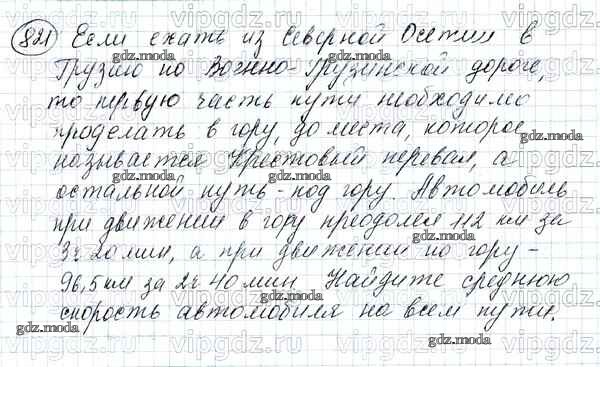 821 Если ехать из Северной Осетии в
Грузию по Военно-Грузинской дороге,
то первую часть пути необходимо
проделать в гору, до места, которое
называется Крестовый перевал, а
остальной путь - под гору. Автомобиль
при движении в гору преодолел 112 км за
3ч 20 мин, а при движении по гору -
96,5 км за 2ч 40 мин. Найдите среднюю
скорость автомобиля на всем пути.